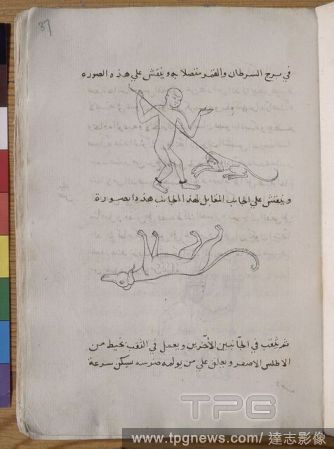 37
في برج السرطان والقمر متصلا به وينقش علي هذه الصوره
وينقش علي الجانب المقابل لهذا الجانب هذه الصورة
ثم يثقب في الجانبين الاخرين ويعمل في الثقب بخيط من
الاطلس الاصفر ويعلق علي من يولمه ضرسه يسكن سرعة
TPG
www.tpgnews.com/達志影像